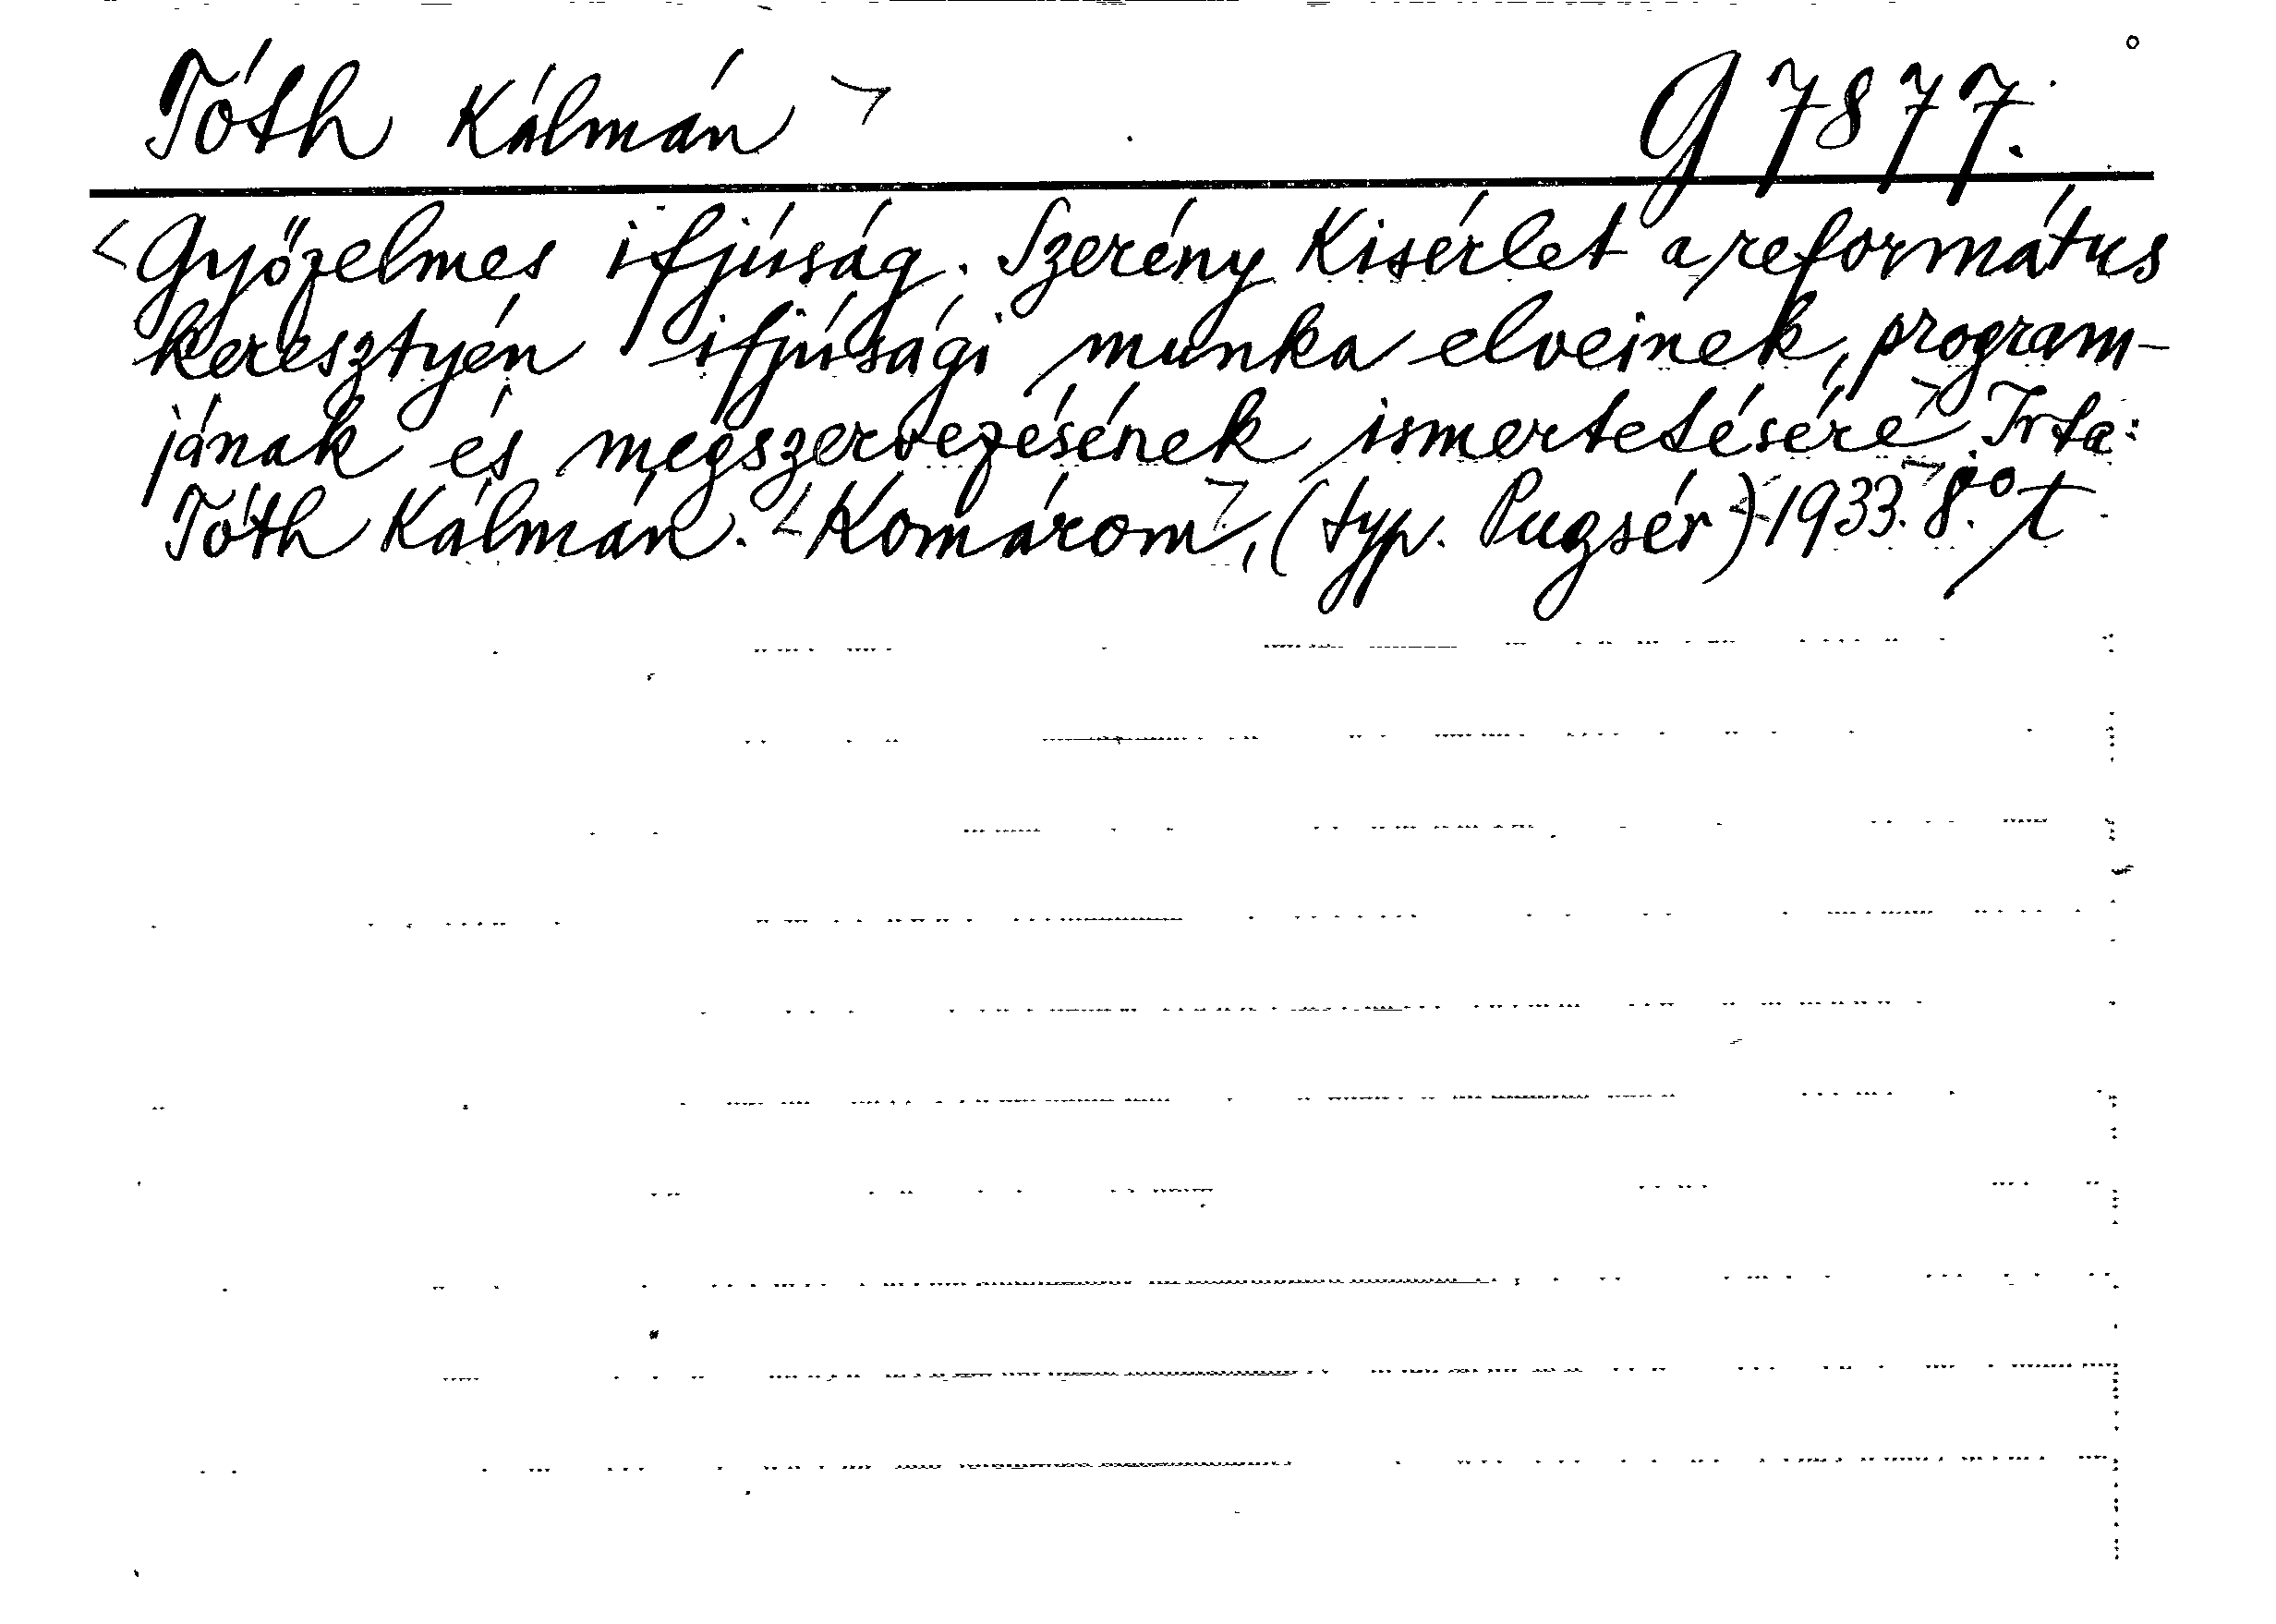 Tóth Kálmán G 7877.
Győzelmes ifjúság. Szerény Kisérlet a református
keresztyén ifjúsági munka elveinek, program-
jának és megszervezésének ismertetésére. Irta:
Tóth Kálmán. Komárom, (typ. Pugsér) 1933. 8.° t